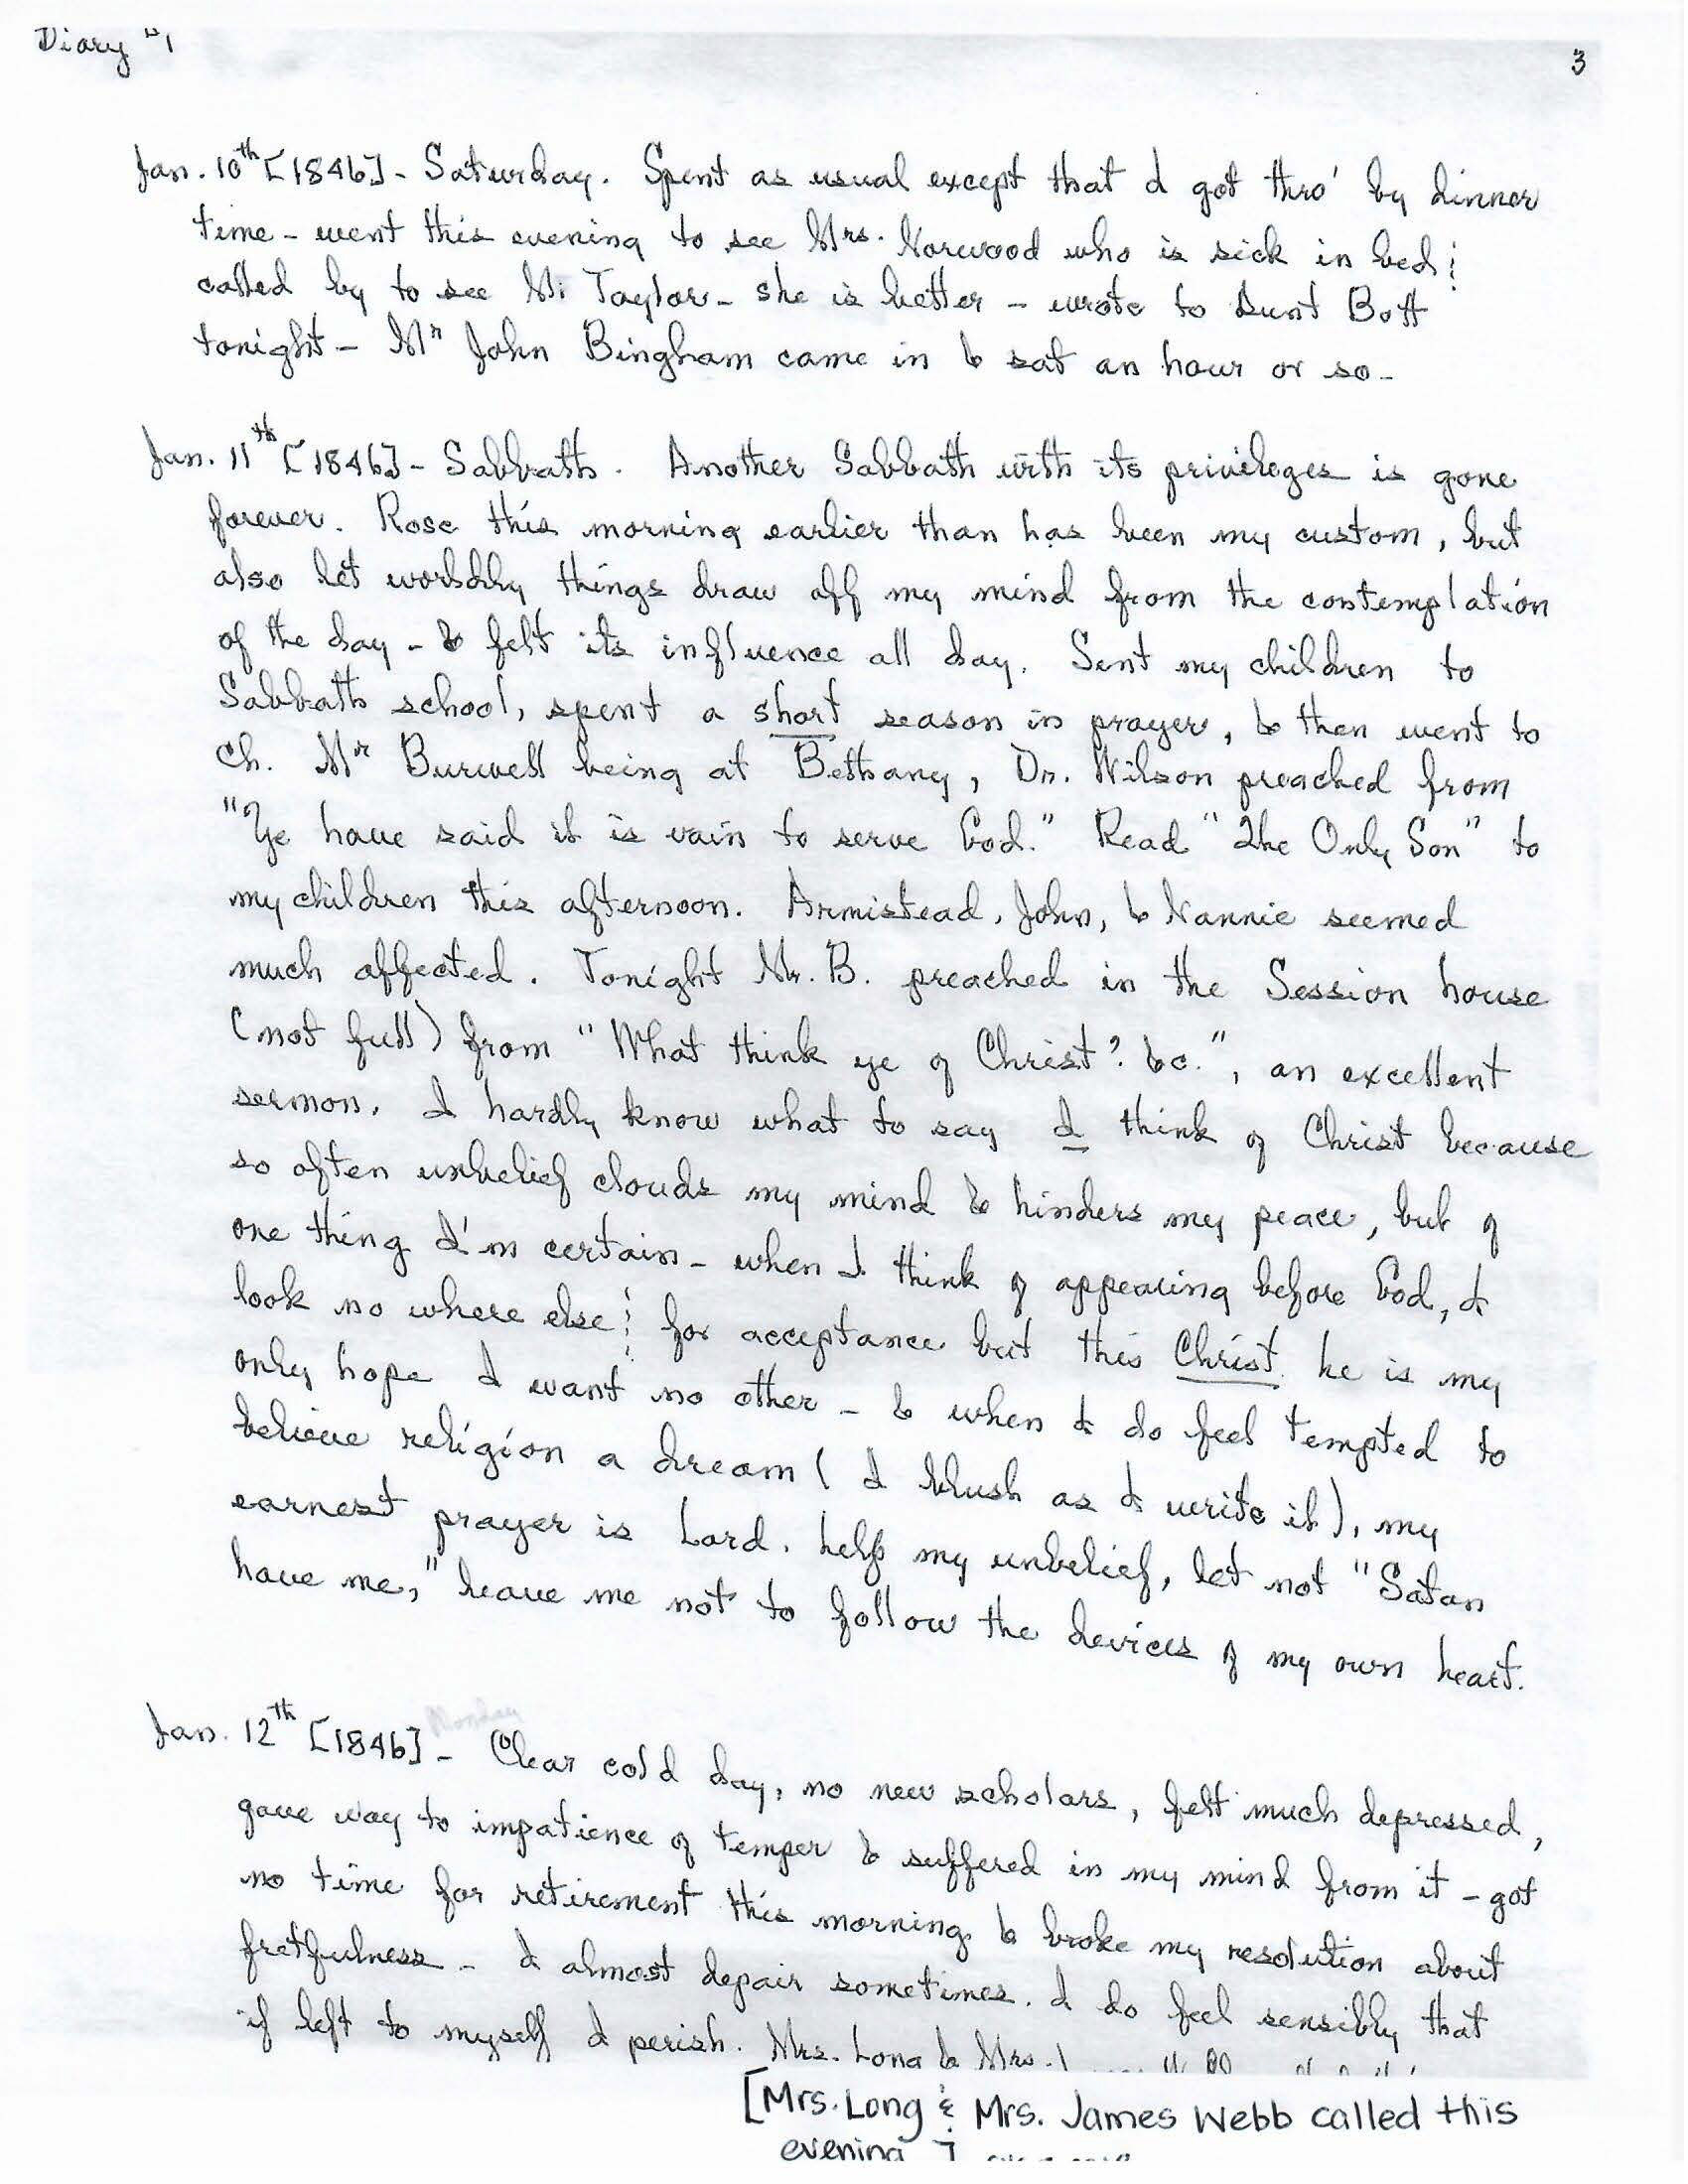 Diary #1
3
Jan. 10th [1846] - Saturday. Spent as usual except that I got thro' by dinner
time - went this evening to see Mrs. Norwood who is sick in bed;
called by to see M. Taylor - she is better - wrote to Aunt Bott
tonight - Mr John Bingham came in & sat an hour or so -
Jan. 11th [1846] - Sabbath. Another Sabbath with its privileges is gone
forever. Rose this morning earlier than has been my custom, but
also let worldly things draw off my mind from the contemplation
of the day - & felt its influence all day. Sent my children to
Sabbath school, spent a short season in prayer, & then went to
Ch. Mr Burwell being at Bethany, Dr. Wilson preached from
"Ye have said it is vain to serve God." Read "The Only Son" to
my children this afternoon. Armistead, John, & Nannie seemed
much affected. Tonight Mr. B. preached in the Session house
(not full) from "What think ye of Christ? &c.", an excellent
sermon. I hardly know what to say I think of Christ because
so often unbelief clouds my mind & hinders my peace, but of
one thing I'm certain - when I think of appearing before God, I
look no where else; for acceptance but this Christ. he is my
only hope I want no other - & when I do feel tempted to
believe religion a dream (I blush as I write it), my
earnest prayer is Lord, help my unbelief, let not "Satan
have me," leave me not to follow the devices of my own heart.
Monday
Jan. 12th [1846] - Clear cold day, no new scholars, felt much depressed,
gave way to impatience of temper & suffered in my mind from it - got
no time for retirement this morning & broke my resolution about
fretfulness - I almost depair sometimes. I do feel sensibly that
if left to myself I perish. Mrs. Long & Mrs.
[Mrs. Long & Mrs. James Webb called this
evening]